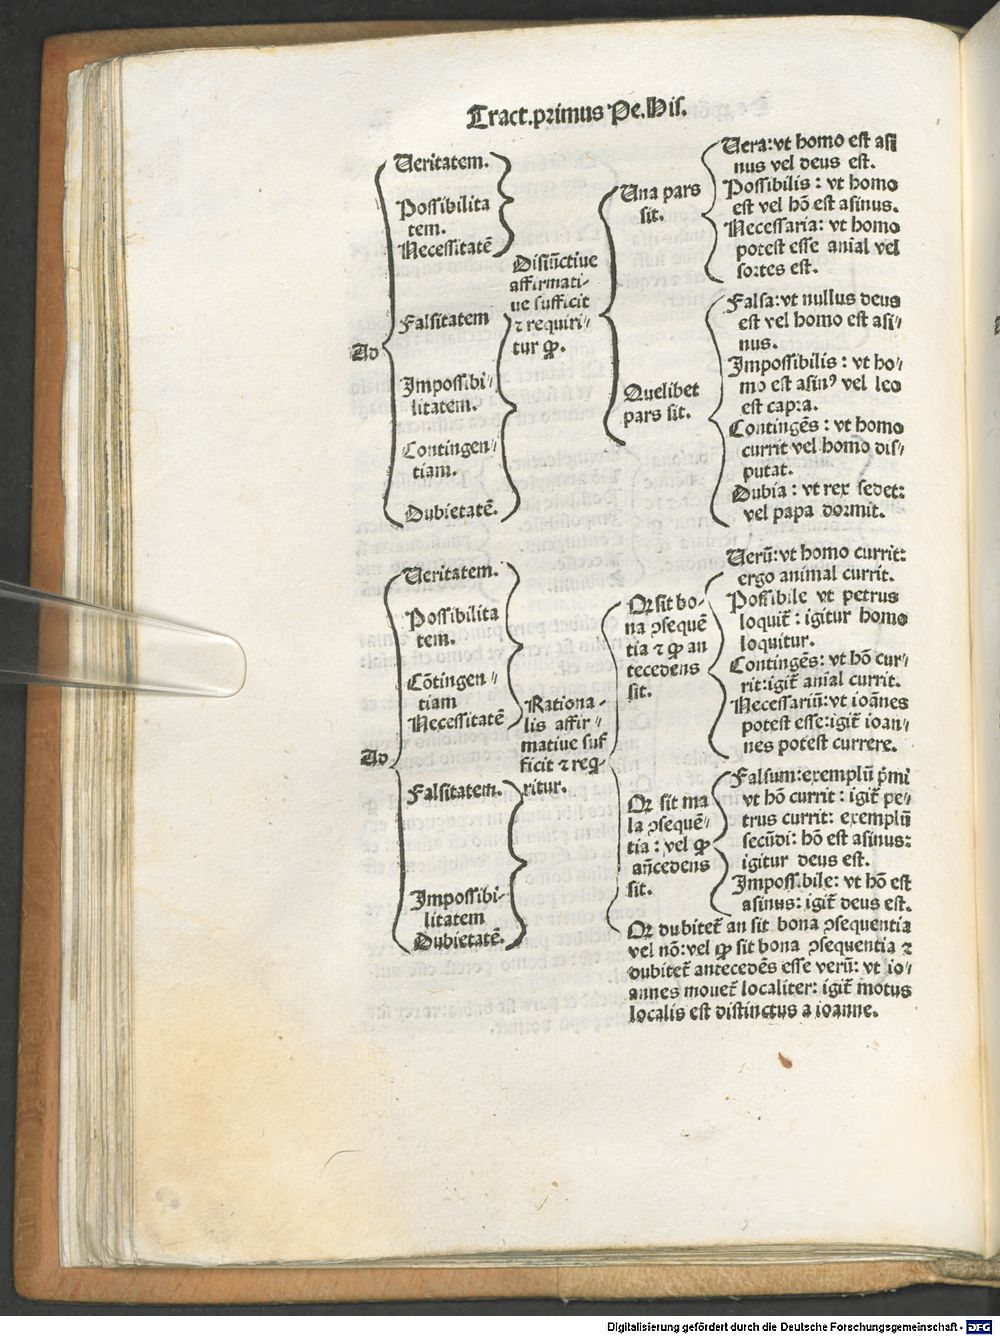 Tract.primus Pe.His.
Ad
Veritatem.
Possibilita
tem.
Necessitatē
Falsitatem
Impossibi⸗
litatem.
Contingen⸗
tiam.
Dubietatē.
Disiūctiue
affirmati⸗
ue sufficit
⁊ requiri⸗
tur ꝙ.
Una pars
sit.
Vera:vt homo est asi
nus vel deus est.
Possibilis : vt homo
est vel hō est asinus.
Necessaria: vt homo
potest esse anial vel
sortes est.
Quelibet
pars sit.
Falsa:vt nullus deus
est vel homo est asi⸗
nus.
Impossibilis : vt ho⸗
mo est asinꝰ vel leo
est capra.
Contingēs : vt homo
currit vel homo dis⸗
putat.
Dubia : vt rex sedet:
vel papa dormit.
Ad
Veritatem.
Possibilita
tem.
Cōtingen⸗
tiam
Necessitatē
Falsitatem.
Impossibi⸗
litatem
Dubietatē.
Rationa⸗
lis affir⸗
matiue suf
ficit ⁊ req̇⸗
ritur.
Qꝛ sit bo⸗
na ꝯsequē
tia ⁊ ꝙ an
tecedens
sit.
Verū:vt homo currit:
ergo animal currit.
Possibile vt petrus
loquit̄ : igitur homo
loquitur.
Contingēs: vt hō cur⸗
rit:igit̄ anial currit.
Necessariū:vt ioānes
potest esse:igit̄ ioan⸗
nes potest currere.
Qꝛ sit ma
la ꝯsequē⸗
tia : vel ꝙ
añcedens
sit.
Falsum:exemplū p̄mi
vt hō currit : igit̄ pe⸗
trus currit: exemplū
secūdi: hō est asinus:
igitur deus est.
Impossibile: vt hō est
asinus: igit̄ deus est.
Qꝛ dubitet̄ an sit bona ꝯsequentia
vel nō:vel ꝙ sit bona ꝯsequentia ⁊
dubitet̄ antecedēs esse verū: vt io⸗
annes mouet̄ localiter: igit̄ motus
localis est distinctus a ioanne.
Digitalisierung gefördert durch die Deutsche Forschungsgemeinschaft - DFG